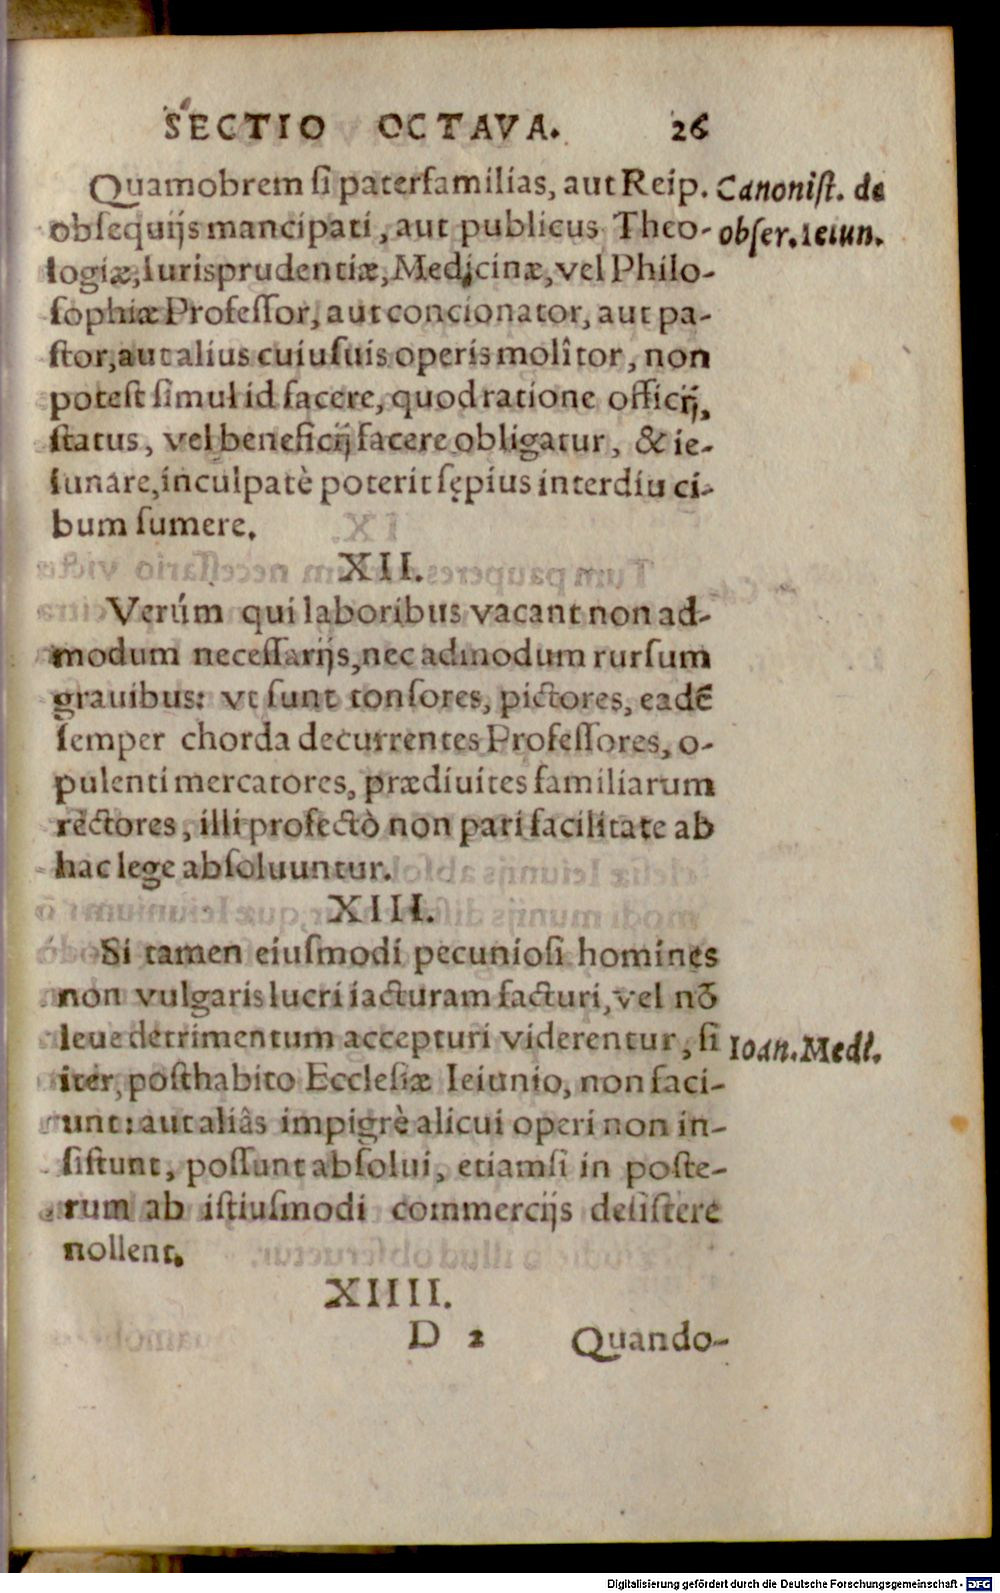 SECTIO OCTAVA. 26
Quamobrem si paterfamilias, aut Reip. Canonist. de
obsequijs mancipati, aut publicus Theo- obser. ieiun.
logiæ, Iurisprudentiæ, Medicinæ, vel Philo-
sophiæ Professor, aut concionator, aut pa-
stor, aut alius cuiusuis operis molîtor, non
potest simul id facere, quod ratione officij,
status, vel beneficij facere obligatur, & ie-
iunare, inculpatè poterit sępius interdiu ci-
bum sumere.
XII.
Verúm qui laboribus vacant non ad-
modum necessarijs, nec admodum rursum
grauibus: vt sunt tonsores, pictores, eadē
semper chorda decurrentes Professores, o-
pulenti mercatores, prædiuites familiarum
rectores, illi profectò non pari facilitate ab
hac lege absoluuntur.
XIII.
Si tamen eiusmodi pecuniosi homines
non vulgaris lucri iacturam facturi, vel nō
leue detrimentum accepturi viderentur, si Ioan. Med.
iter, posthabito Ecclesiæ Ieiunio, non faci-
unt: aut aliâs impigrè alicui operi non in-
sistunt, possunt absolui, etiamsi in poste-
rum ab istiusmodi commercijs desistere
nollent.
XIIII.
D 2 Quando-
Digitalisierung gefördert durch die Deutsche Forschungsgemeinschaft - DFG